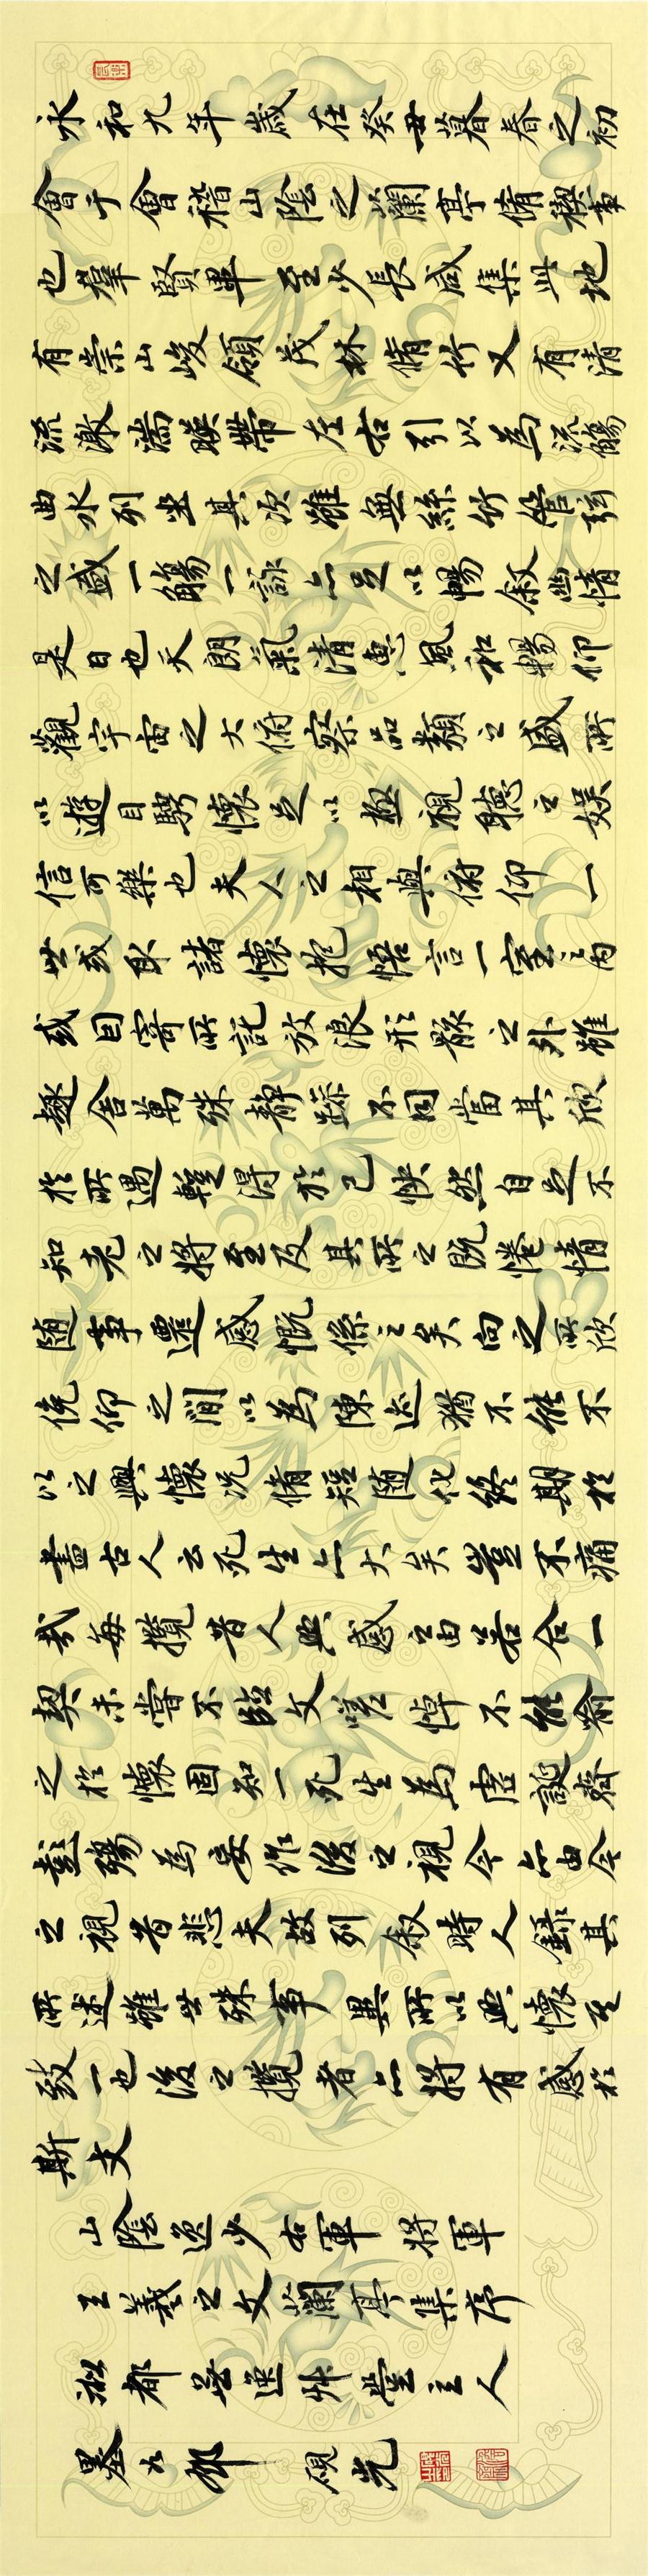 永和九年歲在癸丑暮春之初
會于會稽山陰之蘭亭脩禊事
也羣賢畢至少長咸集此地
有崇山峻領茂林脩竹又有清
流激湍暎帶左右引以為流觴
曲水列坐其次雖無絲竹管弦
之盛一觴一詠亦足以暢叙幽情
是日也天朗氣清惠風和暢仰
觀宇宙之大俯察品類之盛所
以遊目騁懷足以極視聽之娛
信可樂也夫人之相與俯仰一
世或取諸懷抱悟言一室之內
或因寄所託放浪形骸之外雖
趣舍萬殊靜躁不同當其欣
於所遇暫得於己快然自足不
知老之將至及其所之既惓情
隨事遷感慨係之矣向之所欣
俛仰之間以為陳迹猶不能不
以之興懷況脩短隨化終期於
盡古人云死生亦大矣豈不痛
哉每攬昔人興感之由若合一
契未嘗不臨文嗟悼不能喻
之於懷固知一死生為虛誕齊
彭殤為妄作後之視今亦由今
之視昔悲夫故列叙時人錄其
所述雖世殊事異所以興懷其
致一也後之攬者亦將有感於
斯文
山陰逸少右軍將軍
王羲之文蘭亭集序
都逸艸堂主人
墨邨硯光